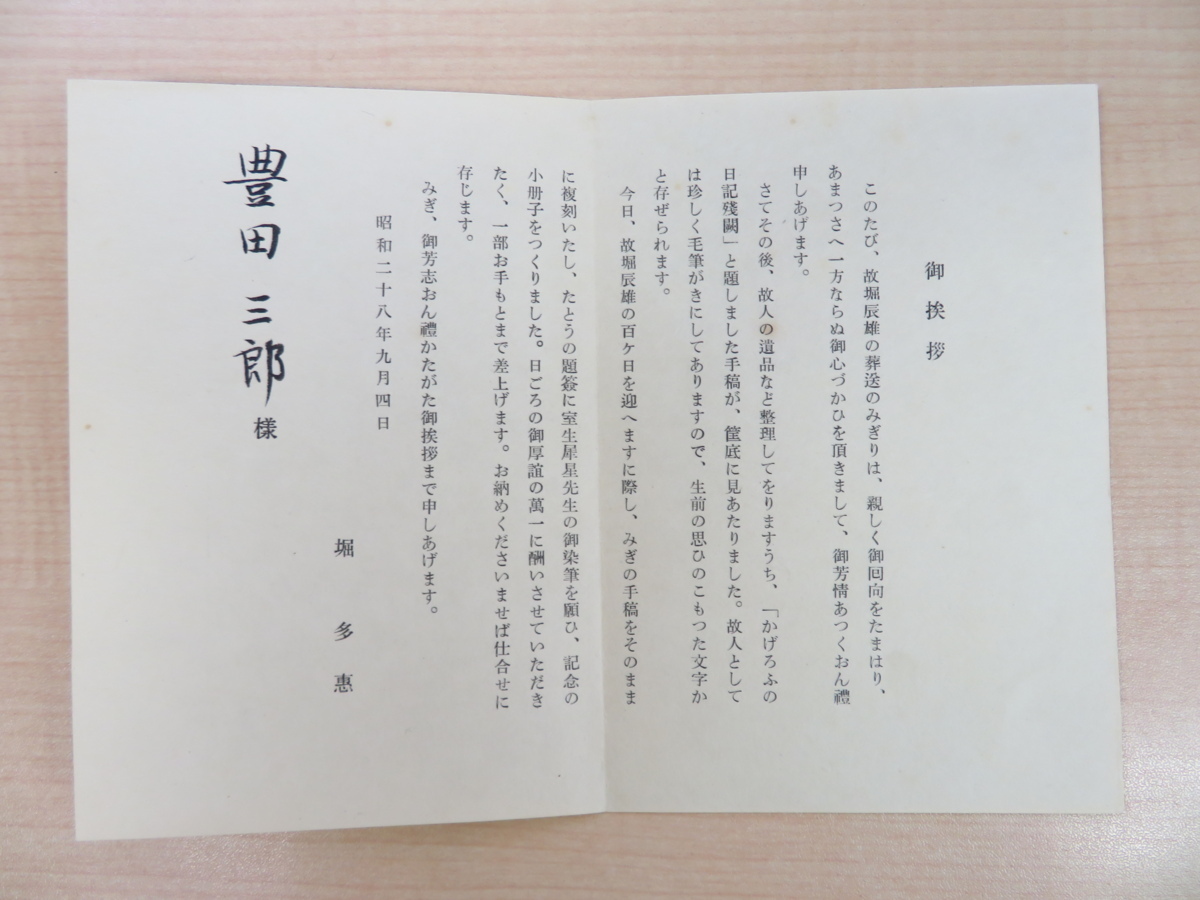 御挨拶
このたび、故堀辰雄の葬送のみぎりは、親しく御回向をたまはり、
あまつさへ一方ならぬ御心づかひを頂きまして、御芳情あつくおん禮
申しあげます。
さてその後、故人の遺品など整理してをりますうち、「かげろふの
日記殘闕」と題しました手稿が、筐底に見あたりました。故人として
は珍しく毛筆がきにしてありますので、生前の思ひのこもつた文字か
と存ぜられます。
今日、故堀辰雄の百ケ日を迎へますに際し、みぎの手稿をそのまま
に複刻いたし、たとうの題簽に室生犀星先生の御染筆を願ひ、記念の
小册子をつくりました。日ごろの御厚誼の萬一に酬いさせていただき
たく、一部お手もとまで差上げます。お納めくださいませば仕合せに
存じます。
みぎ、御芳志おん禮かたがた御挨拶まで申しあげます。
昭和二十八年九月四日
堀多惠
豊田三郎様